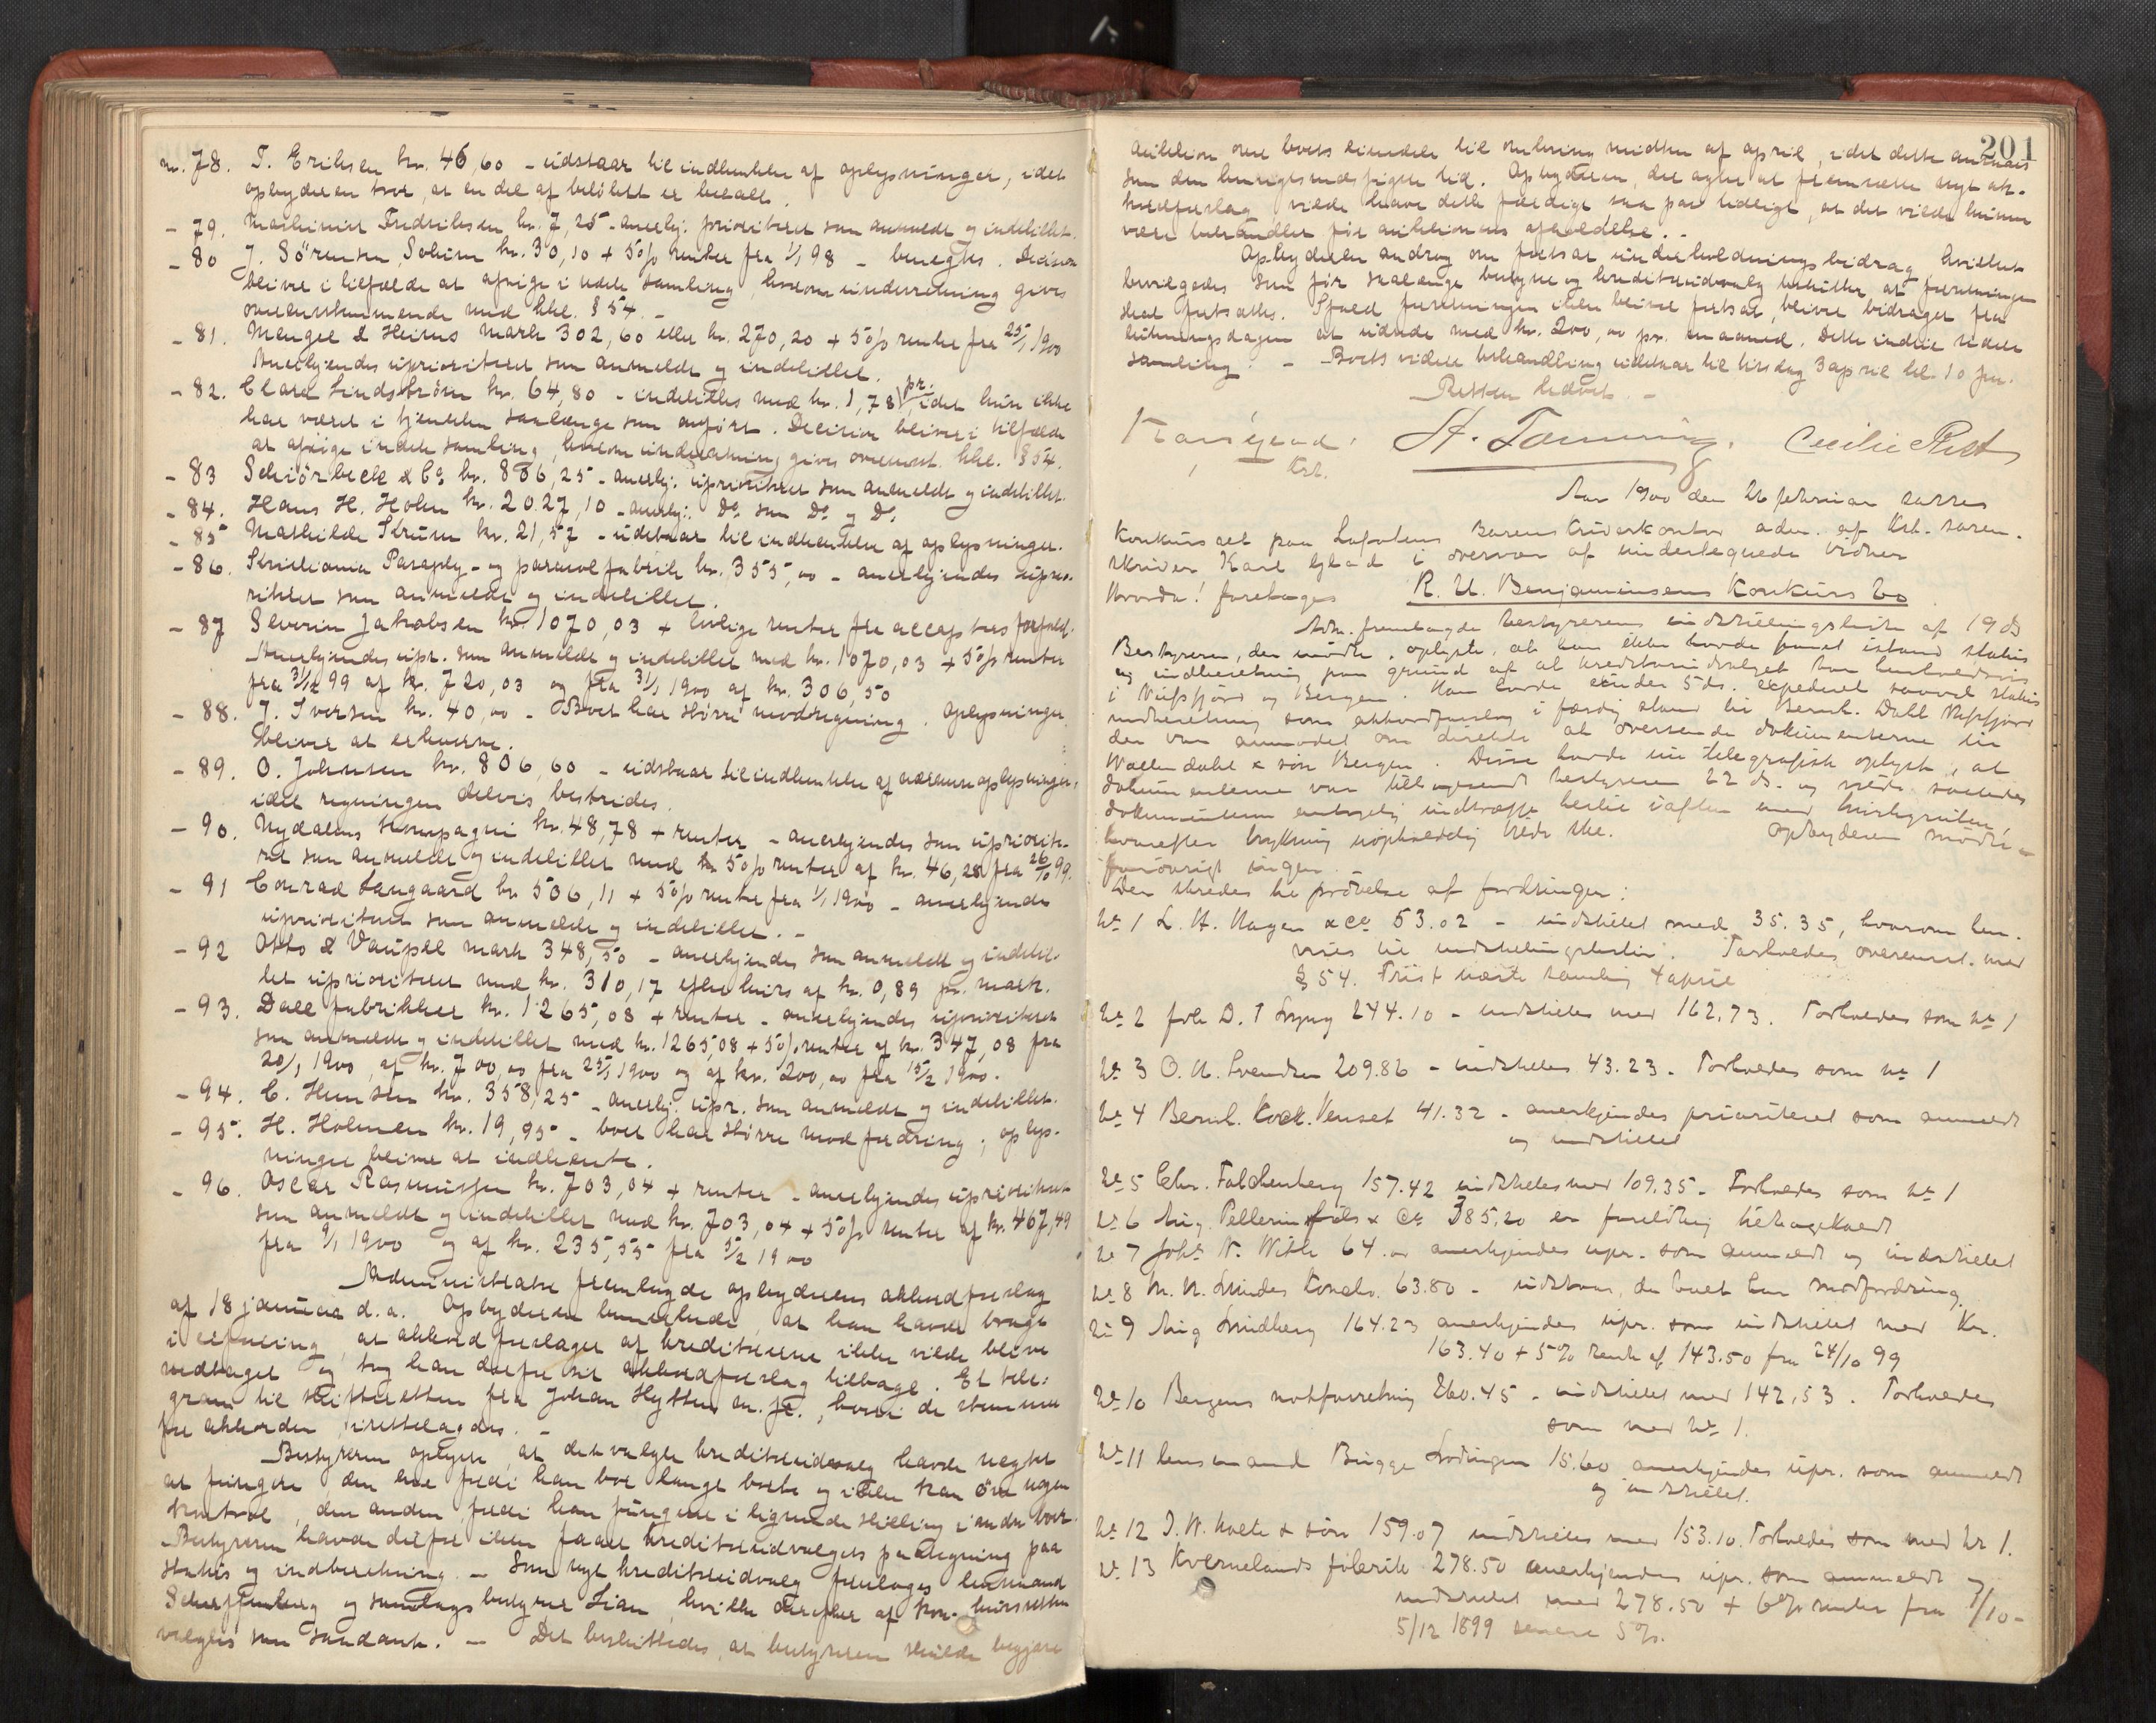 nr. 78. T. Eriksen kr. 46,60 - udstaar til indhentelse af oplysninger, idet
opbyderen tror, at en del af beløbet er betalt.
- 79. Fredriksen kr. 7,25 - anerkj. prioriteret som anmeldt og indstillet.
- 80 J. Sörensen, Solum kr. 30,10 + 5% renter fra 1/1 98 - benegtes. Decision
bliver i tilfælde at afsige i næste samling, hvorom underretning gives
overensstemmende med kkl. § 54. -
- 81. Mengel & Heims mark 302,60 eller kr. 270,20 + 5% renter fra 25/1 1900
Anerkjendes uprioriteret som anmeldt og indstillet.
- 82. Clara Lindstrøm kr. 64,80 - indstilles med kr. 1,78 pr. idet hun ikke
har været i tjenesten saalænge som anført. Decision bliver i tilfælde
at afsige i næste samling, hvorom underretning gives overenst. kkl. § 54.
- 83 Schiörbeck & Co kr. 886,25 - anerkj. uprioriteret som anmeldt og indstillet.
- 84. Hans H. Holm kr. 2027,10 - anerkj. Do som Do og Do
- 85 Mathilde Strüm kr. 21,57 - udstaar til indhentelse af oplysninger.
- 86. Kristiania Paraply- og parasolfabrik kr. 355,00 - anerkjendes uprio-
riteret som anmeldt og indstillet.
- 87 Severin Jakobsen kr. 1070,03 + lovlige renter fra accepters forfald.
Anerkjendes upr. som anmeldt og indstillet med kr. 1070,03 + 5% renter
fra 31/12 99 af kr. 720,03 og fra 31/1 1900 af kr. 306,50
- 88. J. Iversen kr. 40,00 - Boet har större modregning. Oplysninger
bliver at erhverve.
- 89. O. Johnsen kr. 806,60 - udstaar til indhentelse af nærmere oplysninger,
idet regningen delvis bestrides.
- 90. Nydalens kompagni kr. 48,78 + renter - anerkjendes som uprioriteret
som anmeldt og indstillet med 5% renter af kr. 46,28 fra 26/10 99.
- 91 Conrad Langaard kr 506,11 + 5% renter fra 1/1 1900 - anerkjendes
uprioriteret som anmeldt og indstillet. -
- 92 Otto & Vaupel mark 348,50 - anerkjendes som anmeldt og indstil-
let uprioriteret med kr. 310,17 efter kurs af kr. 0,89 pr. mark.
- 93. Dale fabrikker kr. 1265,08 + renter - anerkjendes uprioriteret
som anmeldt og indstillet med kr. 1265,08 + 5% renter af kr. 347,08 fra
20/1 1900, af kr. 700,00 fra 25/1 1900 og af kr. 200,00 fra 15/2 1900.
- 94. C. Hansen kr. 358,25 - anerkj. upr. som anmeldt og indstillet.
- 95. H. Holmen kr. 19,95 - boet har större modfordring; oplys-
ninger bliver at indhente.
- 96. Oscar Rasmussen kr. 703,04 + renter - anerkjendes uprioriteret
som anmeldt og indstillet med kr. 703,04 + 5% renter af kr. 467,49
fra 9/1 1900 og af kr. 235,55 fra 5/2 1900
Administrator fremlagde opbyderens akkordforslag
af 18 januar d.a. Opbyderen bemærkede, at han havde bragt
i erfaring, at akkordforslaget af kreditorerne ikke vilde blive
vedtaget og tog han derfor sit akkordforslag tilbage. Et tele-
gram til skifteretten fra Johan Hytten m. fl., hvori de stemme
for akkorden, irettelagdes. -
Bestyreren oplyste, at det valgte kreditorudvalg havde negtet
at fungere den ene fordi han bor langt borte og ikke kan öve nogen
kontrol, den anden fordi han fungerer i lignende stilling i andre boer.
Bestyreren havde derfor ikke faaet kreditorudvalgets paategning paa
status og indberetning. - Som nyt kreditorudvalg foresloges lensmand
Scharffenberg og samlagsbestyrer Lian, hvilke derefter af kon- kursretten
valgtes som saadant. - Det besluttedes, at bestyreren skulde begjære
201
auktion over boets eiendele til omkring midten af april, idet dette ansaaes
som den hensigtsmæssigste tid. Opbyderen, der agter at fremsætte nyt ak-
kordforslag vilde have dette færdigt saa pas tidligt, at det vilde kunne
være behandlet før auktionens afholdelse. -
Opbyderen androg om fortsat underholdningsbidrag, hvilket
bevilgedes som før saalænge bestyrer og kreditorudvalg beslutter at forretningen
skal fortsættes. Ifald forretningen ikke bliver fortsat, bliver bidraget fra
lukningsdagen at udrede med kr. 200,00 pr. maaned. Dette indtil næste
samling. - Boets videre behandling udstaar til tirsdag 3 april kl. 10 fm.
Retten hævet. -
Karl Glad. St. Tømming. Cecilie Rist
Kst.
Aar 1900 den 26 februar sattes
Konkursret paa Lofotens Sorenskriverkontor adm. af Kst. soren-
skriver Karl Glad i overvær af undertegnede vidner
Hvorda! foretoges R. U. Benjaminsens Konkurs bo
Adm. fremlagde bestyrerens indstillingsliste af 19 ds
Bestyreren, der mödte, oplyste, at han ikke havde faaet istand status
og indberetning paa grund af at kreditorudvalget bor henholdsvis
i Nusfjord og Bergen. Han havde under 5 ds. expederet saavel status
indberetning som akkordforslag i færdig stand til Bernh. Dahl Nusfjord
der var anmodet om direkte at oversende dokumenterne til
Wallendahl & sön Bergen. Disse havde nu telegrafisk oplyst, at
dokumenterne var tilbagesendt bestyreren 22 ds. og vilde saaledes
dokumenterne antagelig indtræffe hertil iaften med hurtigruten,
hvorefter trykning uopholdelig vilde ske. Opbyderen mödte -
forövrigt ingen.
Der skredes til prövelse af fordringer:
No 1 L. H. Hagen & Co 53.02 - indstillet med 35.35, hvorom hen-
vises til indstillingslisten. Forholdes overenst. med
§ 54. Frist næste samling 4 april
No 2 frk D. T 244.10 - indstilles med 162.73. Forholdes som No 1
No 3 O. A. Svendsen 209.86 - indstilles 43.23 - Forholdes som No 1
No 4 Bernh. Kock. Venset 41.32 - anerkjendes prioriteret som anmeldt
og indstillet
No 5 Chr. Falchenberg 157.42 indstilles med 109.35 - Forholdes som No 1
No 6 Aug. Pellerin fils & Co 385.20 er foreløbig tilbagekaldt
No 7 Johs N. With 64.00 anerkjendes upr. som anmeldt og indstillet
No 8 M. N. Lindes Konebo. 63.80 - udstaar, da boet har modfordring.
No 9 Aug Lindberg 164.23 anerkjendes upr. som indstillet med Kr.
163.40 + 5% rente af 143.50 fra 24/10 99
No 10 Bergens notforretning 260.45 - indstillet med 142,53. Forholdes
som med No 1.
No 11 lensmand Brügge Lödingen 15.60 anerkjendes upr. som anmeldt
og indstillet.
No 12 J. W. Holte & sön 159.07 indstilles med 153.10. Forholdes som med No 1.
No 13 Kvernelands fabrik 278.50 anerkjendes upr. som anmeldt og
indstillet med 278.50 + 6% renter fra 1/10 -
5/12 1899 senere 5%.